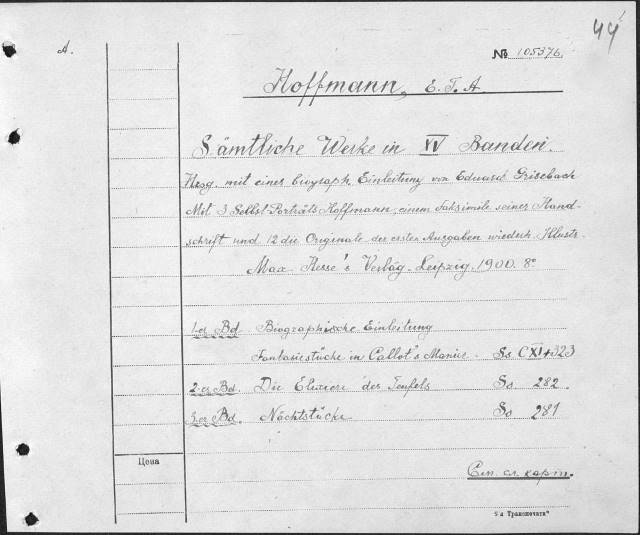 44
A.
№ 105376.
Hoffmann, E. T. A.
Sämtliche Werke in XV Banden.
Hrsg. mit einer biograph. Einleitung von Eduard Grisebach
Mit 3 Selbst-Porträts Hoffmann, einem Faksimile seiner Hand-
schrift und 12 die Originale der ersten Ausgaben wiederh. Illustr.
Max Hesse's Verlag. Leipzig. 1900. 8°
1-er Bd. Biographische Einleitung
Fantasiestücke in Callot's Manier. Ss. CXI+323
2-er Bd. Die Elixiere des Teufels Ss. 282.
3-er Bd. Nachtstücke Ss 281
Цена
См. сл. карт.
"я Транспечата"